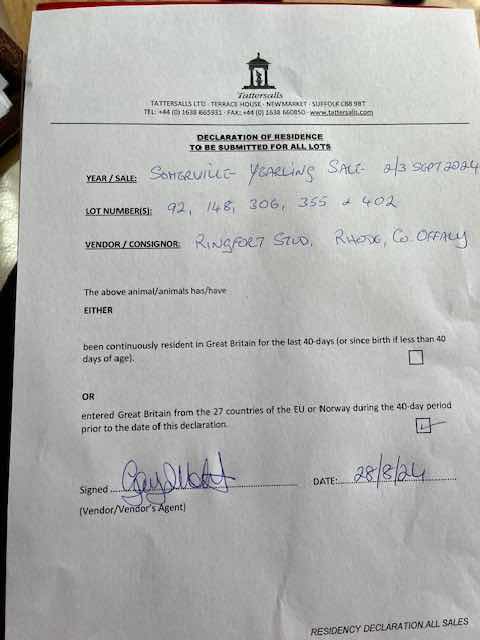 Tattersalls
TATTERSALLS LTD · TERRACE HOUSE · NEWMARKET · SUFFOLK CB8 9BT
TEL: +44 (0) 1638 665931 · FAX: +44 (0) 1638 660850 · www.tattersalls.com
DECLARATION OF RESIDENCE
TO BE SUBMITTED FOR ALL LOTS
YEAR / SALE: SOMERVILLE YEARLING SALE 2/3 SEPT 2024
LOT NUMBER(S): 92, 148, 306, 355 & 402
VENDOR / CONSIGNOR: RINGFORT STUD, RHODE, CO. OFFALY
The above animal/animals has/have
EITHER
been continuously resident in Great Britain for the last 40-days (or since birth if less than 40
days of age).
OR
entered Great Britain from the 27 countries of the EU or Norway during the 40-day period
prior to the date of this declaration.
Signed
DATE: 28/8/24
(Vendor/Vendor's Agent)
RESIDENCY DECLARATION.ALL SALES